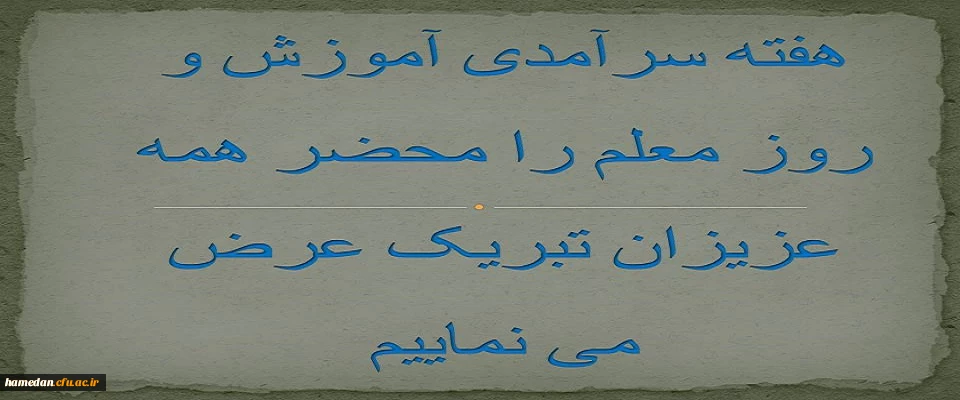 هفته سرآمدی آموزش و
روز معلم را محضر همه
عزیزان تبریک عرض
می نماییم
hamedan.cfu.ac.ir